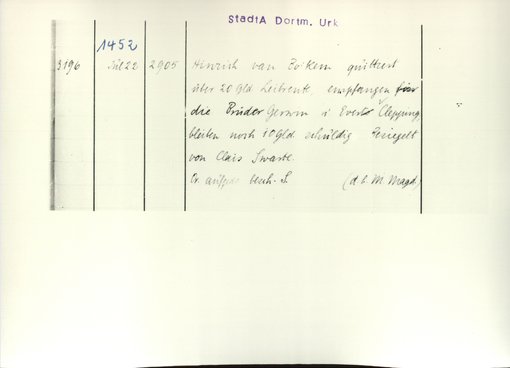 StadtA Dortm. Urk
1452
3196 Jul 22 2905 Hinrich van quittiert
über 20 Gld Leibrente, empfangen für
die Brüder Gerwin u Evert Clepping,
bleiben noch 10 Gld. schuldig. Besiegelt
von Clais Swarte.
Or. besch. S. (d. b. M. Magd.)